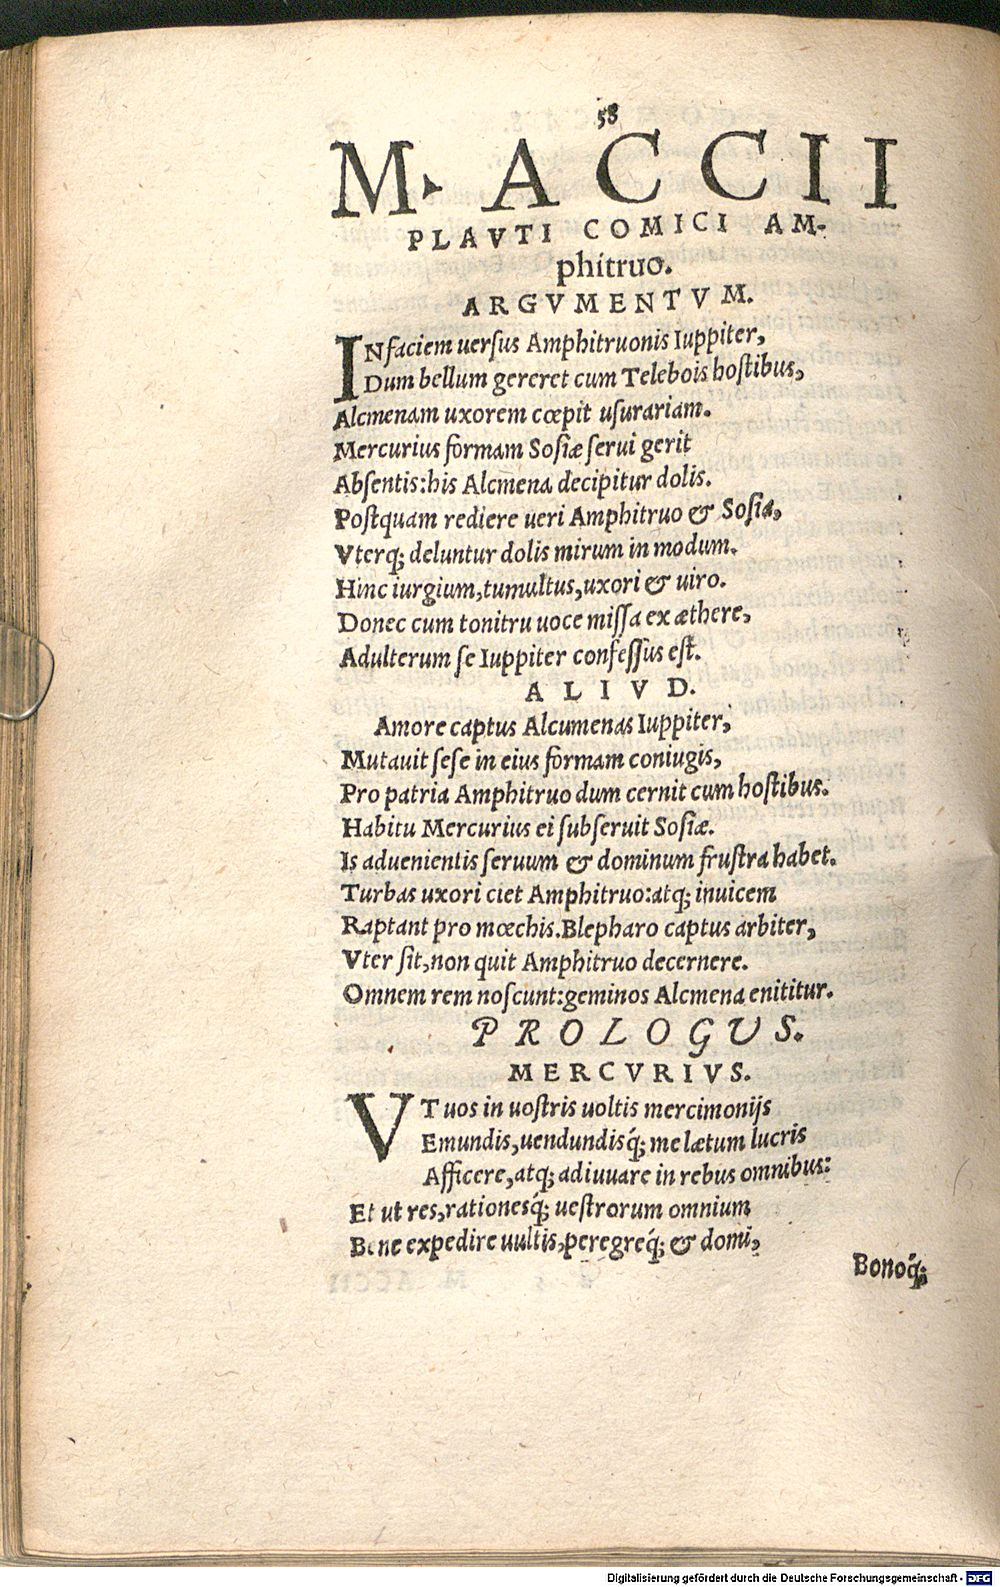 58
M. ACCII
PLAVTI COMICI AM-
phitruo.
ARGVMENTVM.
IN faciem uerſus Amphitruonis Iuppiter,
Dum bellum gereret cum Telebois hoſtibus,
Alcmenam uxorem cœpit uſurariam.
Mercurius formam Soſiæ ſerui gerit
Abſentis:his Alcmena decipitur dolis.
Poſtquam rediere ueri Amphitruo & Soſia,
Vterq; deluntur dolis mirum in modum.
Hinc iurgium,tumultus,uxori & uiro.
Donec cum tonitru uoce miſſa ex æthere,
Adulterum ſe Iuppiter confeſſus eſt.
ALIVD.
Amore captus Alcumenas Iuppiter,
Mutauit ſeſe in eius formam coniugis,
Pro patria Amphitruo dum cernit cum hoſtibus.
Habitu Mercurius ei ſubſeruit Soſiæ.
Is aduenientis ſeruum & dominum fruſtra habet.
Turbas uxori ciet Amphitruo:atq; inuicem
Raptant pro mœchis.Blepharo captus arbiter,
Vter ſit,non quit Amphitruo decernere.
Omnem rem noſcunt:geminos Alcmena enititur.
PROLOGUS.
MERCVRIVS.
VT uos in uoſtris uoltis mercimonijs
Emundis,uendundisq́; me lætum lucris
Afficere,atq; adiuuare in rebus omnibus:
Et ut res,rationesq́; ueſtrorum omnium
Bene expedire uultis,peregreq́; & domi,
Bonoq́;
Digitalisierung gefördert durch die Deutsche Forschungsgemeinschaft - DFG